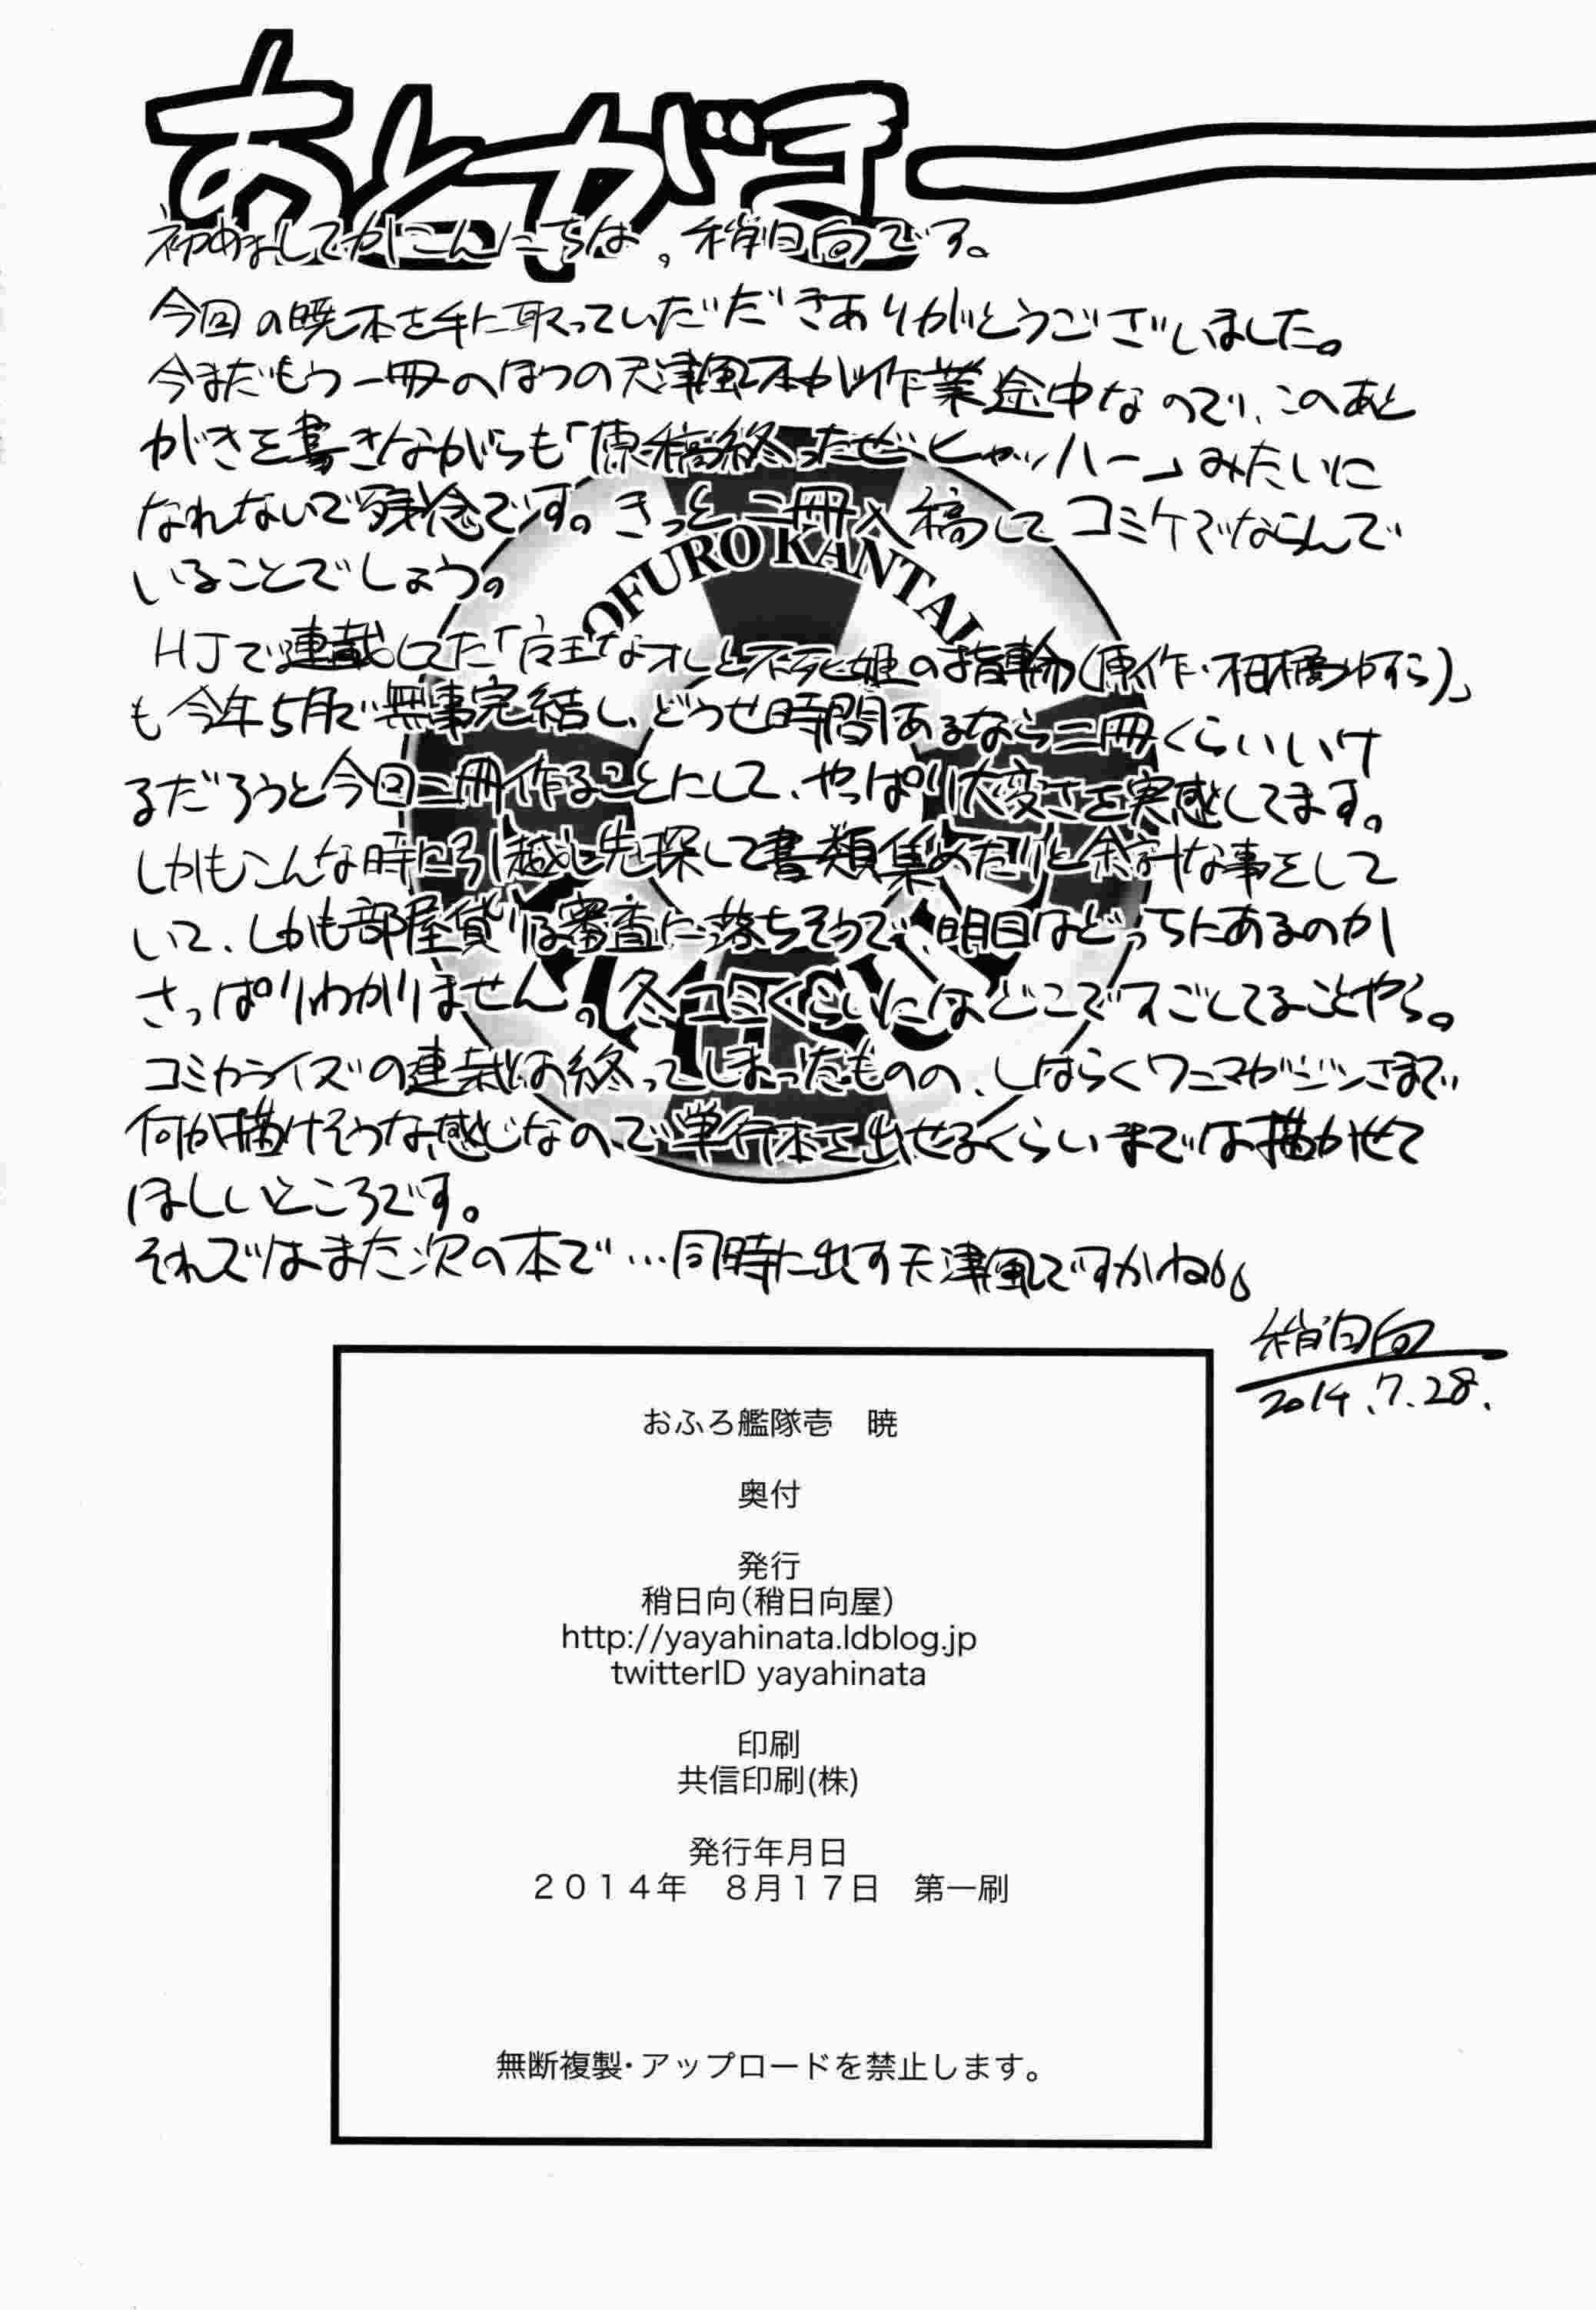 あとがきー
初めましてかこんにちは、稍日向です。
今回の暁本を手に取っていただきありがとうございました。
今まだもう一冊のほうの天津風本が作業途中なので、このあと
がきを書きながらも「原稿終ったぜヒャッハー」みたいに
なれないで残念です。きっと二冊入稿してコミケでならんで
いることでしょう。
HJで連載してた「店主なオレと不死姫の指輪(原作・柑橘ゆすら)」
も今年5月で無事完結し、どうせ時間あるなら二冊くらいいけ
るだろうと今回二冊作ることにして、やっぱり大変さを実感してます。
しかもこんな時に引越し先探して書類集めたりと余計な事をして
いて、しかも部屋貸りは審査に落ちそうで、明日はどっちにあるのか
さっぱりわかりません。冬コミくらいにはどこですごしてることやら。
コミカライズの連載は終ってしまったものの、しばらくワニマガジンさまで
何か描けそうな感じなので単行本を出せるくらいまでは描かせて
ほしいところです。
それではまた次の本で…同時に出す天津風ですかね。
OFURO KANTAI
稍日向
2014.7.28.
おふろ艦隊壱 暁
奥付
発行
稍日向(稍日向屋)
http://yayahinata.ldblog.jp
twitterID yayahinata
印刷
共信印刷(株)
発行年月日
2014年 8月17日 第一刷
無断複製・アップロードを禁止します。